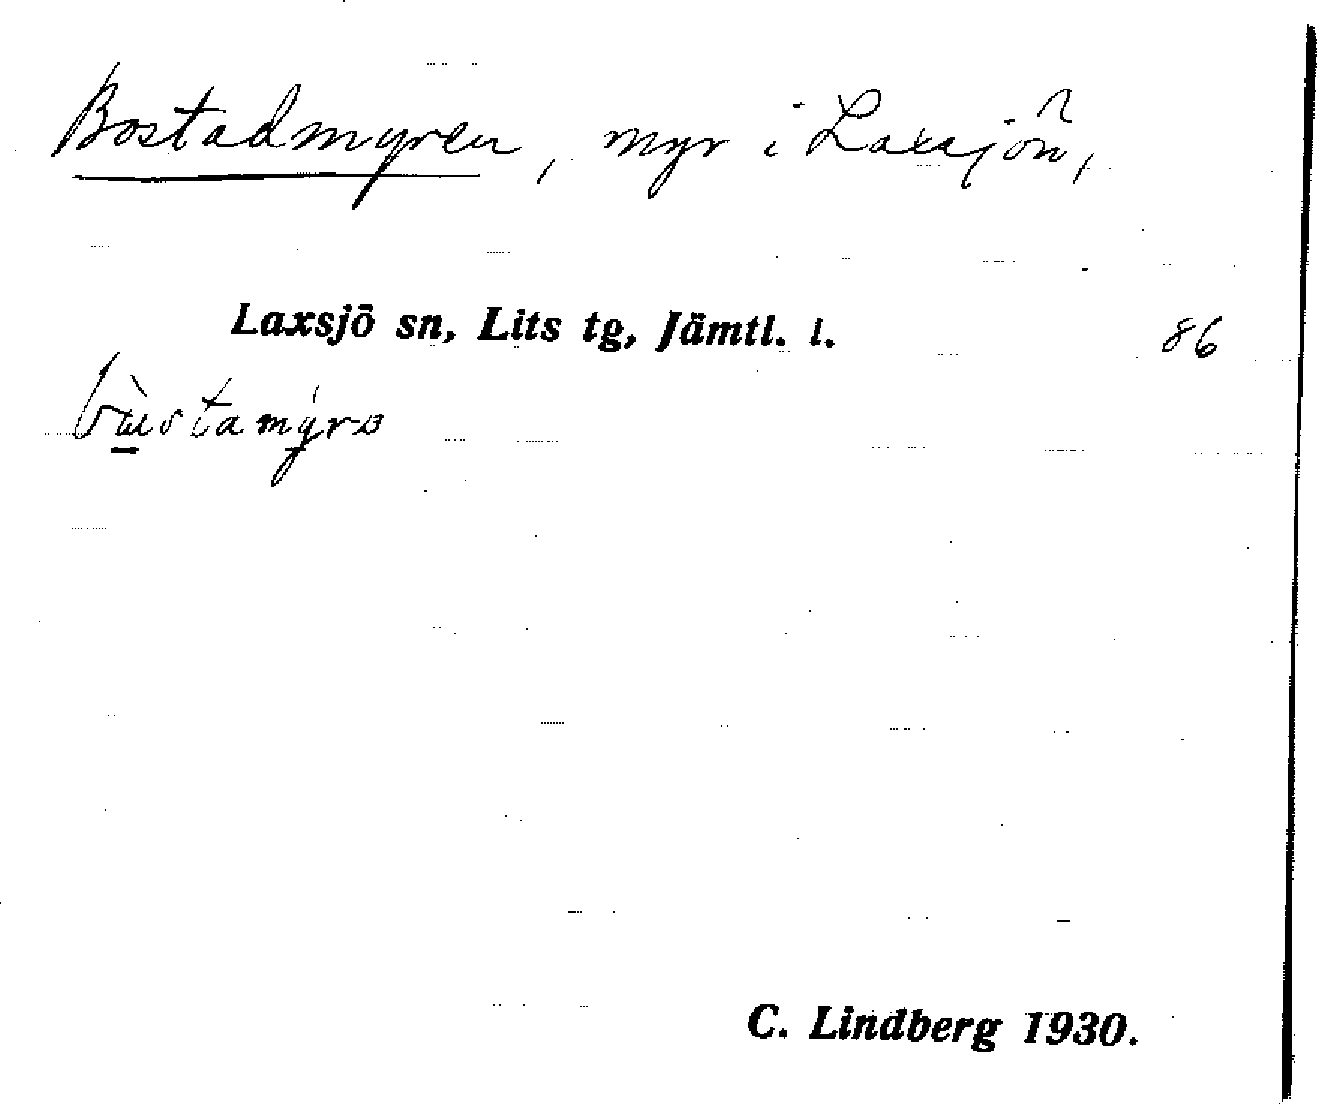 Bostadmyren, myr i Laxsjön,
Laxsjö sn, Lits tg, Jämtl. l. 86
C. Lindberg 1930.